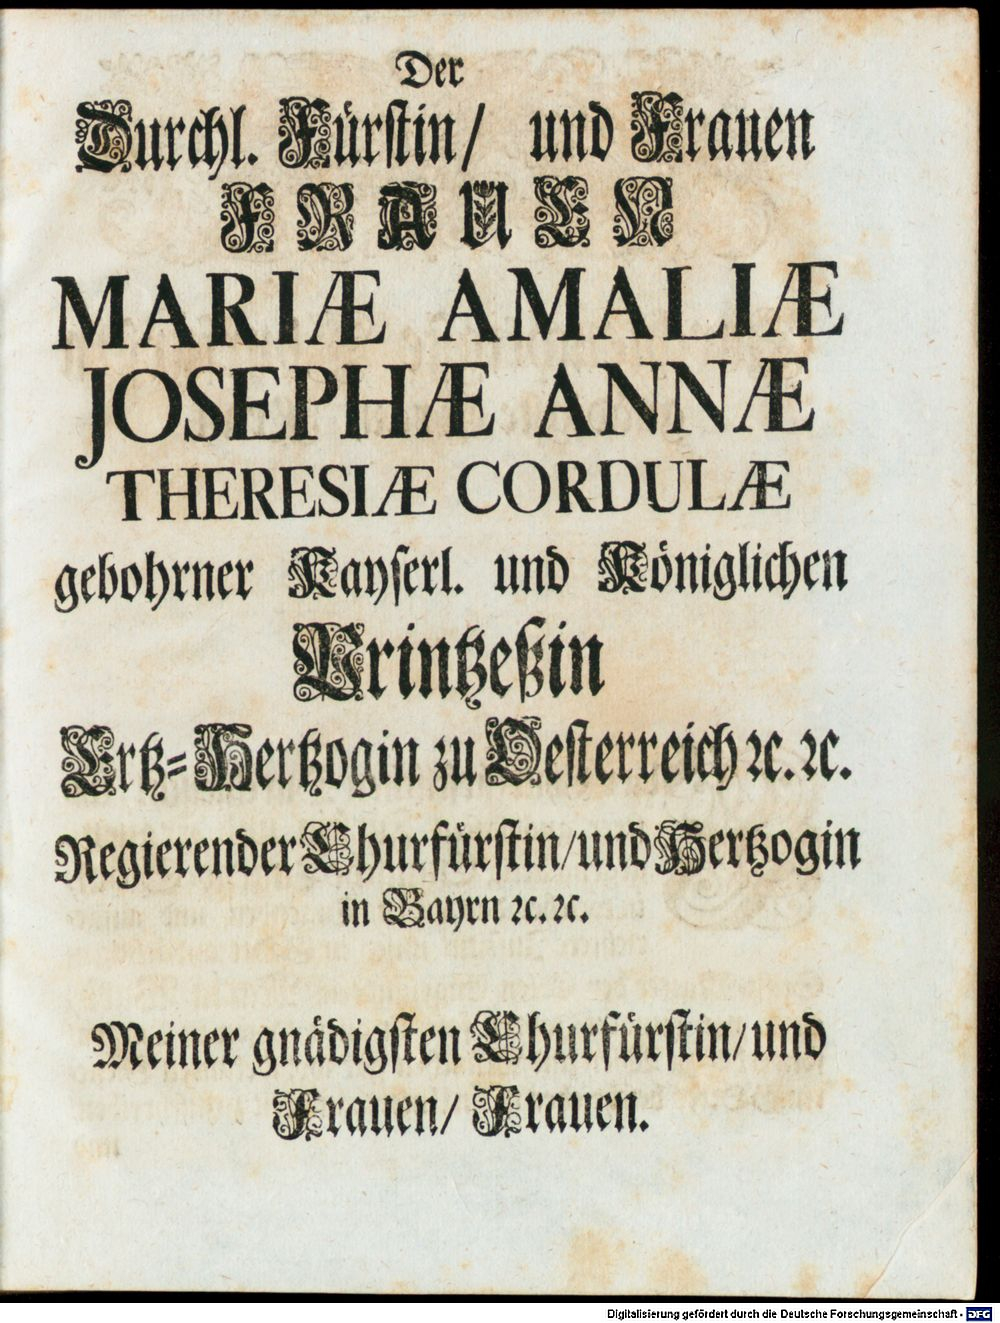 Der
Durchl. Fürstin/ und Frauen
FRAUEN
MARIÆ AMALIÆ
JOSEPHÆ ANNÆ
THERESIÆ CORDULÆ
gebohrner Kayserl. und Königlichen
Printzeßin
Ertz-Hertzogin zu Oesterreich ꝛc. ꝛc.
Regierender Churfürstin/und Hertzogin
in Bayrn ꝛc. ꝛc.
Meiner gnädigsten Churfürstin/und
Frauen/ Frauen.
Digitalisierung gefördert durch die Deutsche Forschungsgemeinschaft - DFG